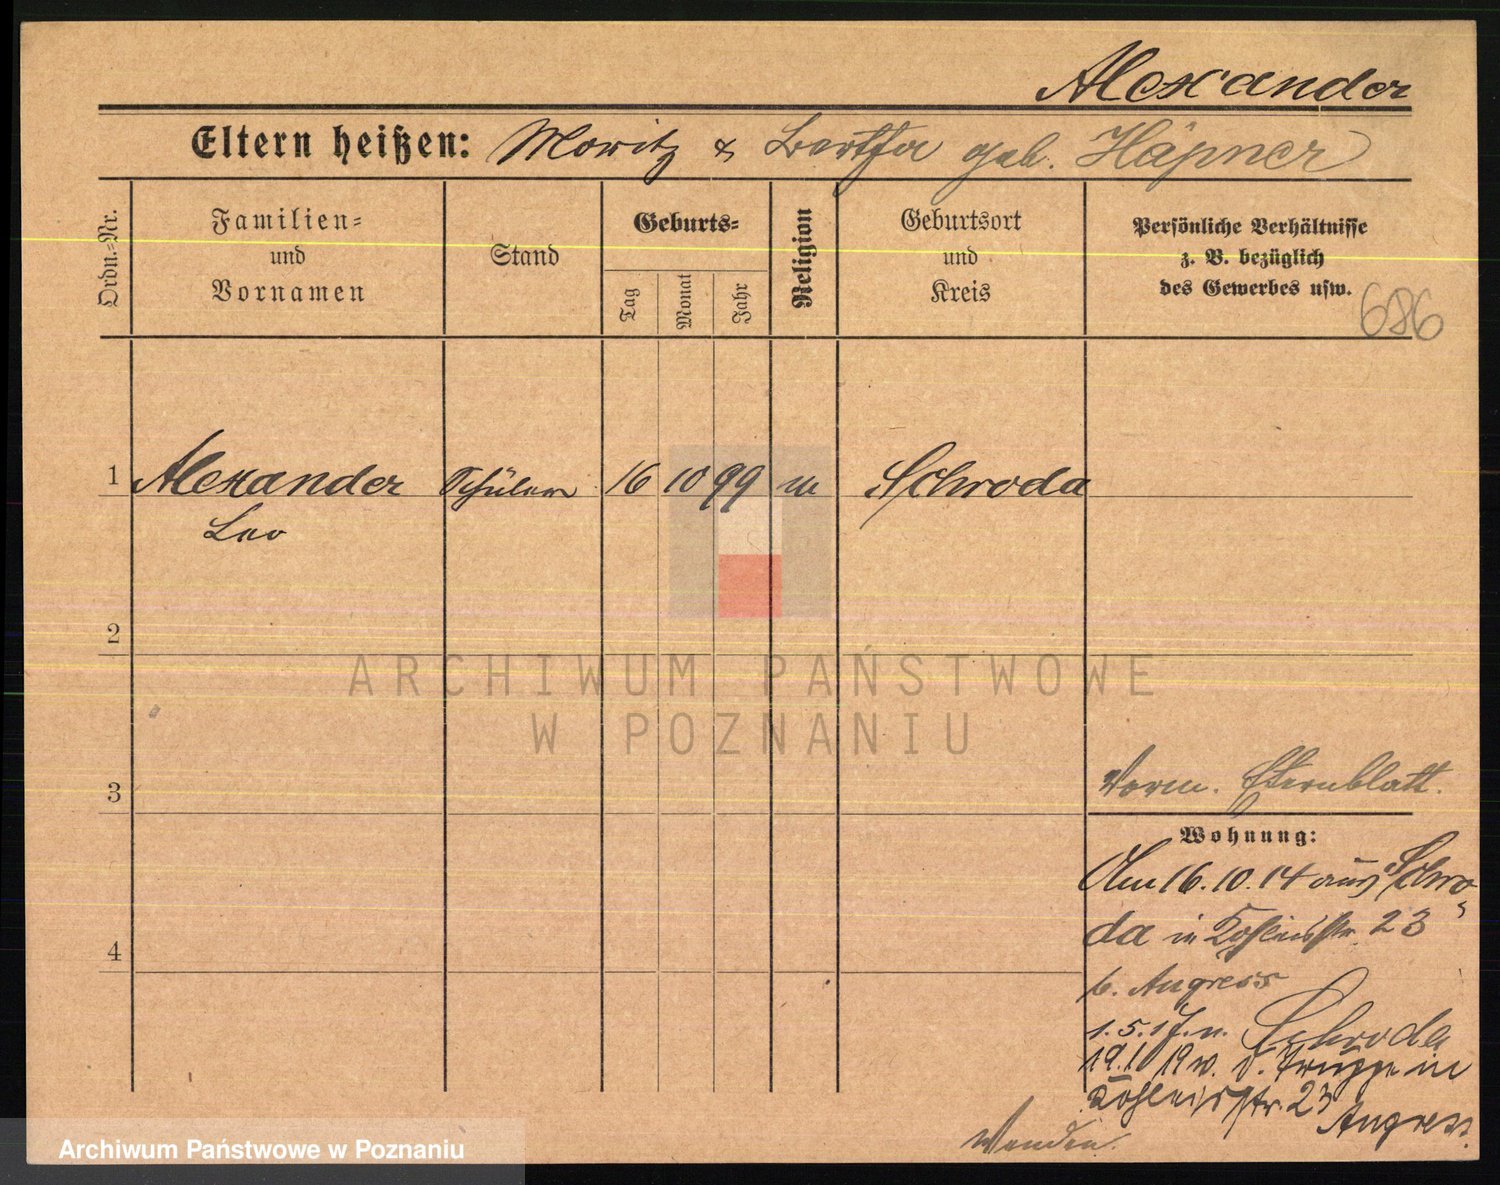 Alexander
Eltern heißen: Moritz & Bertha geb. Häpner
Ordn.-Nr.
Familien- und Vornamen
Stand
Geburts-
Tag
Monat
Jahr
Religion
Geburtsort und Kreis
Persönliche Verhältnisse
z. B. bezüglich
des Gewerbes usw.
686
1 Alexander Schüler 16 10 99 m Schroda
Leo
2
3
4
Vorm. Sternblatt.
Wohnung:
Am 16.10.14 aus Schro-
da in Kohleisstr. 23
b. Angress
1.5.17. n. Schroda
19.1 19 v. d. Truppe in
Kohleisstr. 23
Angress.
Wenden.
ARCHIWUM PAŃSTWOWE
W POZNANIU
Archiwum Państwowe w Poznaniu